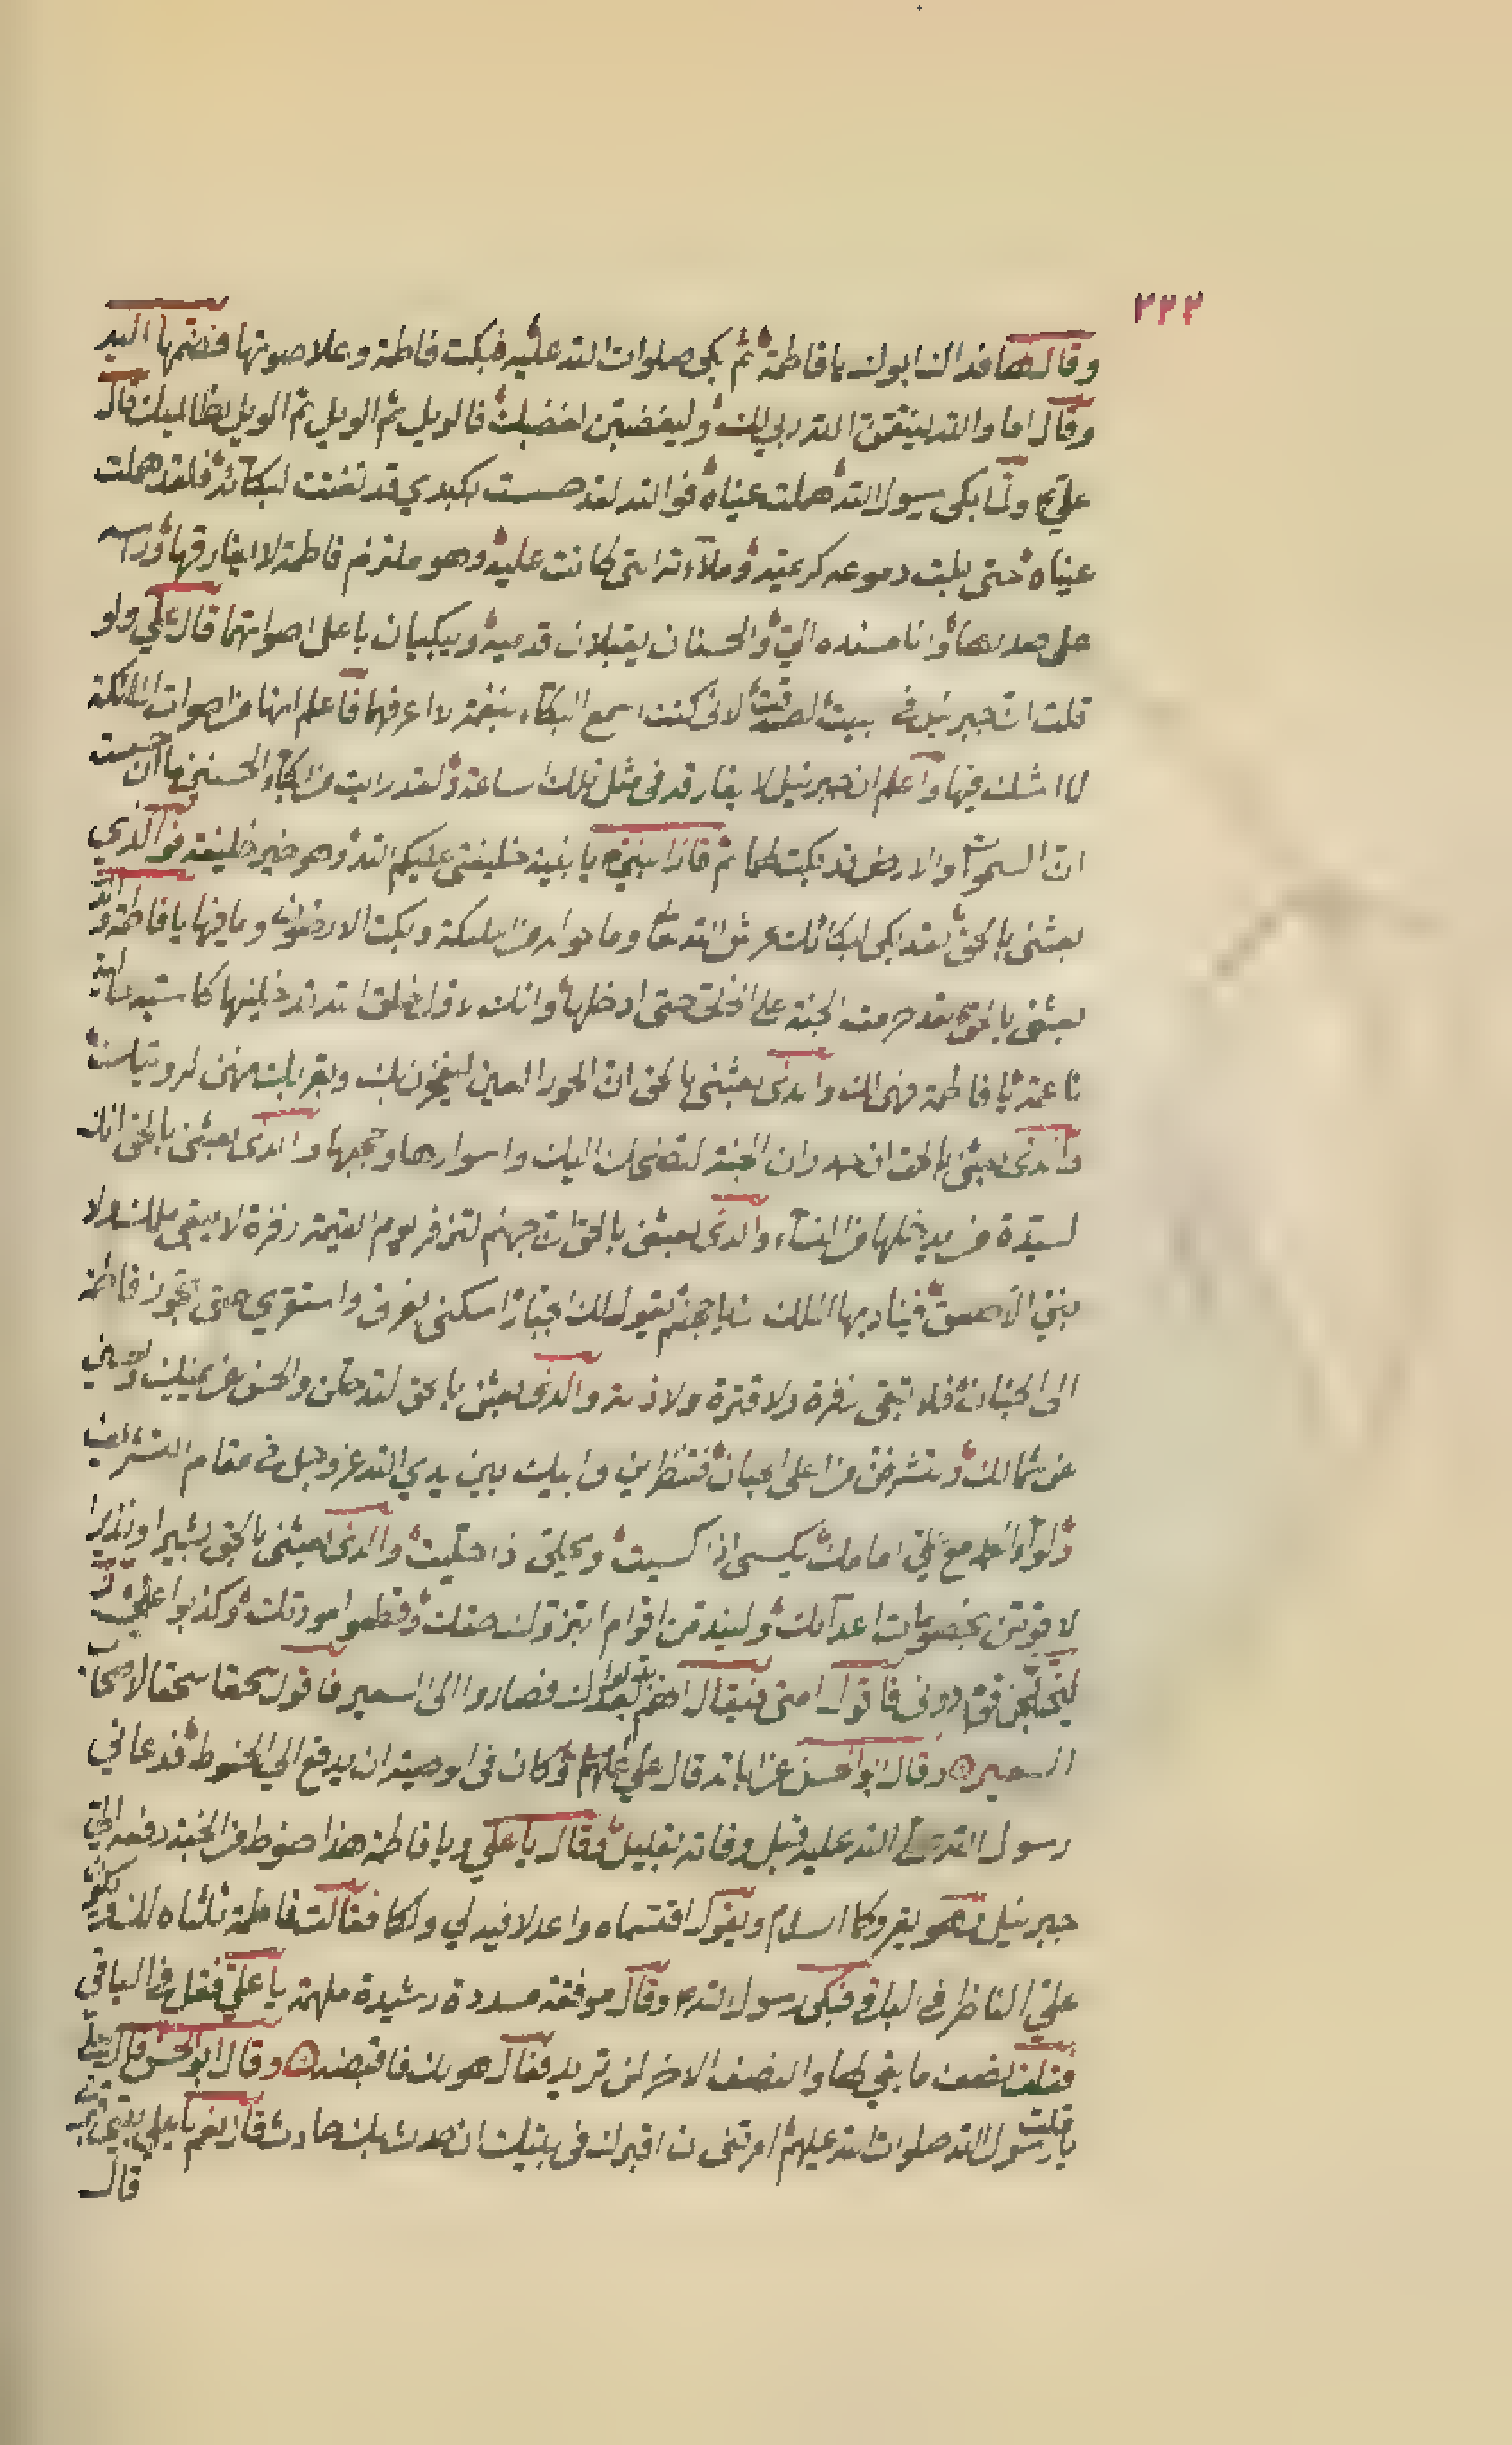 ٢٣٢
وقال لها فداك ابوك يا فاطمة ثم بكى صلوات الله عليه فبكت فاطمة وعلا صوتها فضمّها اليه
وقال اما والله لينتقمن الله ربي لك وليغضبن لغضبك فالويل ثم الويل ثم الويل لظالميك قال
علي ولمّا بكى رسول الله هملت عيناه فوالله لقد حست بكبدي قد تفتت لبكائه فلقد هملت
عيناه حتى بلت دموعه كريمته وملاءته التي كانت عليه وهو ملتزم فاطمة لا يفارقها وراسه
على صدرها وانا مسنده اليّ والحسنان يقبلان قدميه ويبكيان باعلى اصواتهما قال علي ولو
قلت ان جبرئيل في بيت لصدقت لاني كنت اسمع البكاء بنغمة لا اعرفها فاعلم انها من اصوات الملئكة
لا اشك فيها واعلم ان جبرئيل لا يفارقه في مثل تلك الساعة ولقد رايت من بكاء الحسنين ما ان حسبت
ان السموات والارض قد بكت لهما ثم قال لابنته يا بنية خليفتي عليكم الله وهو خير خليفة فوالذي
بعثني بالحق لقد بكى لبكائك عرش الله وما حوله من الملئكة وبكت الارضون وما فيها يا فاطمة والذي
بعثني بالحق لقد حرمت الجنة على الخلق حتى ادخلها وانك لاول خلق الله تدخلينها كاسية حالية
ناعمة يا فاطمة فهنيا لك والذي بعثني بالحق ان الحور العين ليفخرن بك وتقر بك عينهن لرؤيتك
والذي بعثني بالحق ان الجنة لتضحك اليك واسوارها وحجبها والذي بعثني بالحق انك
لسيدة من يدخلها من النساء والذي بعثني بالحق ان جهنم لتزفر يوم القيمة زفرة لا يبقى ملك ولا
نبي الا صعق فيناديها الملك يا جهنم يقول لك الجبار اسكني بعزتي واستقري حتى تجوز فاطمة
الى الجنان فلا تبقى زفرة ولا قترة ولا ذلة والذي بعثني بالحق لتدخلن والحسن عن يمينك والحسين
عن شمالك وتشرفن من اعلى الجنان فتنظرين وابيك بين يدي الله عز وجل في مقام الشرايف
ولواء الحمد مع علي امامك يكسى اذا كسيت ويحلى اذا حليت والذي بعثني بالحق بشيرا ونذيرا
لاقومن بخصومات اعدائك وليندمن اقوام ابتزوك حقك وقطعوا مودتك وكذبوا علي
ليختلجن دوني فاقول امتي فيقال انهم بدلوا بعدك فصاروا الى السعير فاقول سحقا سحقا لاصحاب
السعير وقال ابو الحسن عن ابائه قال علي وكان في الوصية ان يدفع الي الحنوط فدعاني
رسول الله صلى الله عليه قبل وفاته بقليل وقال يا علي ويا فاطمة هذا حنوط من الجنة دفعه الي
جبرئيل وهو يقروكما السلام ويقول اقتسماه واعدلا فيه لي ولكما فقالت فاطمة ثلثاه لك وليكن
علي الناظر في الباقي فبكى رسول الله وقال موفقة مسددة رشيدة ملهمة يا علي فقل في الباقي
فقلت نصف ما بقي لها والنصف الاخر لمن تريد فقال هو لك فاقبضه وقال ابو الحسن قال علي
يا رسول الله صلوات الله عليهم امرتني ان اقبرك في بيتك ان حدث بك حادث قال نعم يا علي بيتي
قال